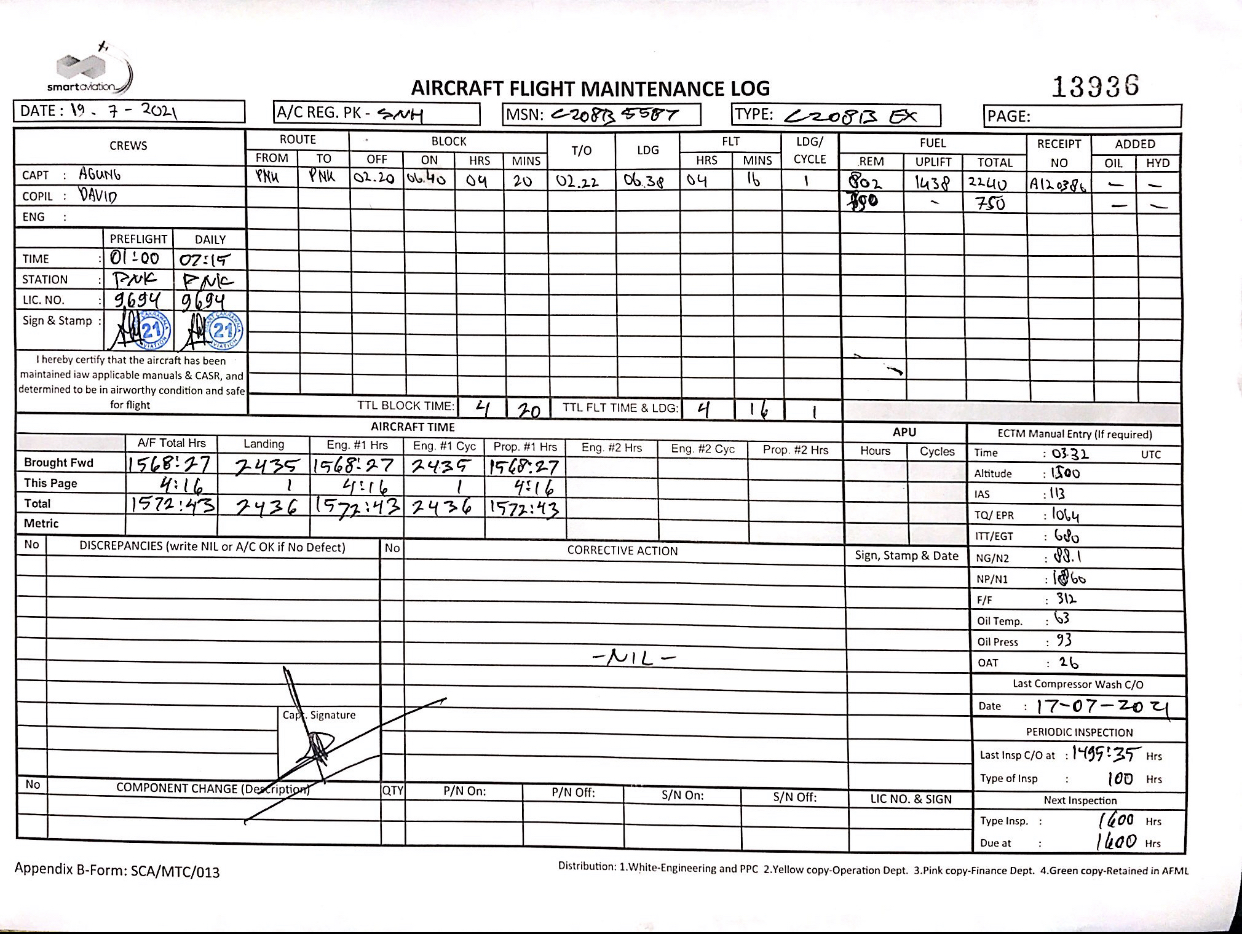 smartaviation
AIRCRAFT FLIGHT MAINTENANCE LOG
13936
DATE : 19 . 7 - 2021
A/C REG. PK - SNH
MSN: C208B 5587
TYPE: C208B EX
PAGE:
CREWS
ROUTE
BLOCK
T/O
LDG
FLT
LDG/ CYCLE
FUEL
RECEIPT NO
ADDED
FROM TO OFF ON HRS MINS HRS MINS REM UPLIFT TOTAL OIL HYD
CAPT : AGUNG PNK PNK 02.20 06.40 04 20 02.22 06.38 04 16 1 802 1438 2240 A120386 - -
COPIL : DAVID - 750 - -
ENG :
PREFLIGHT DAILY
TIME : 01:00 07:15
STATION : PNK PNK
LIC. NO. : 9694 9694
Sign & Stamp : 21 21
I hereby certify that the aircraft has been
maintained iaw applicable manuals & CASR, and
determined to be in airworthy condition and safe
for flight
TTL BLOCK TIME: 4 20 TTL FLT TIME & LDG: 4 16 1
AIRCRAFT TIME
APU
A/F Total Hrs Landing Eng. #1 Hrs Eng. #1 Cyc Prop. #1 Hrs Eng. #2 Hrs Eng. #2 Cyc Prop. #2 Hrs Hours Cycles
Brought Fwd 1568:27 2435 1568:27 2435 1568:27
This Page 4:16 1 4:16 1 4:16
Total 1572:43 2436 1572:43 2436 1572:43
Metric
ECTM Manual Entry (If required)
Time : 03.32 UTC
Altitude : 1500
IAS : 113
TQ/ EPR : 1064
ITT/EGT : 680
NG/N2 : 88.1
NP/N1 : 1860
F/F : 312
Oil Temp. : 63
Oil Press : 93
OAT : 26
Last Compressor Wash C/O
Date : 17-07-2021
PERIODIC INSPECTION
Last Insp C/O at : 1495:35 Hrs
Type of Insp : 100 Hrs
Next Inspection
Type Insp. : 1600 Hrs
Due at : 1600 Hrs
No DISCREPANCIES (write NIL or A/C OK if No Defect) No CORRECTIVE ACTION Sign, Stamp & Date
-NIL-
Capt. Signature
No COMPONENT CHANGE (Description) QTY P/N On: P/N Off: S/N On: S/N Off: LIC NO. & SIGN
Appendix B-Form: SCA/MTC/013
Distribution: 1.White-Engineering and PPC 2.Yellow copy-Operation Dept. 3.Pink copy-Finance Dept. 4.Green copy-Retained in AFML